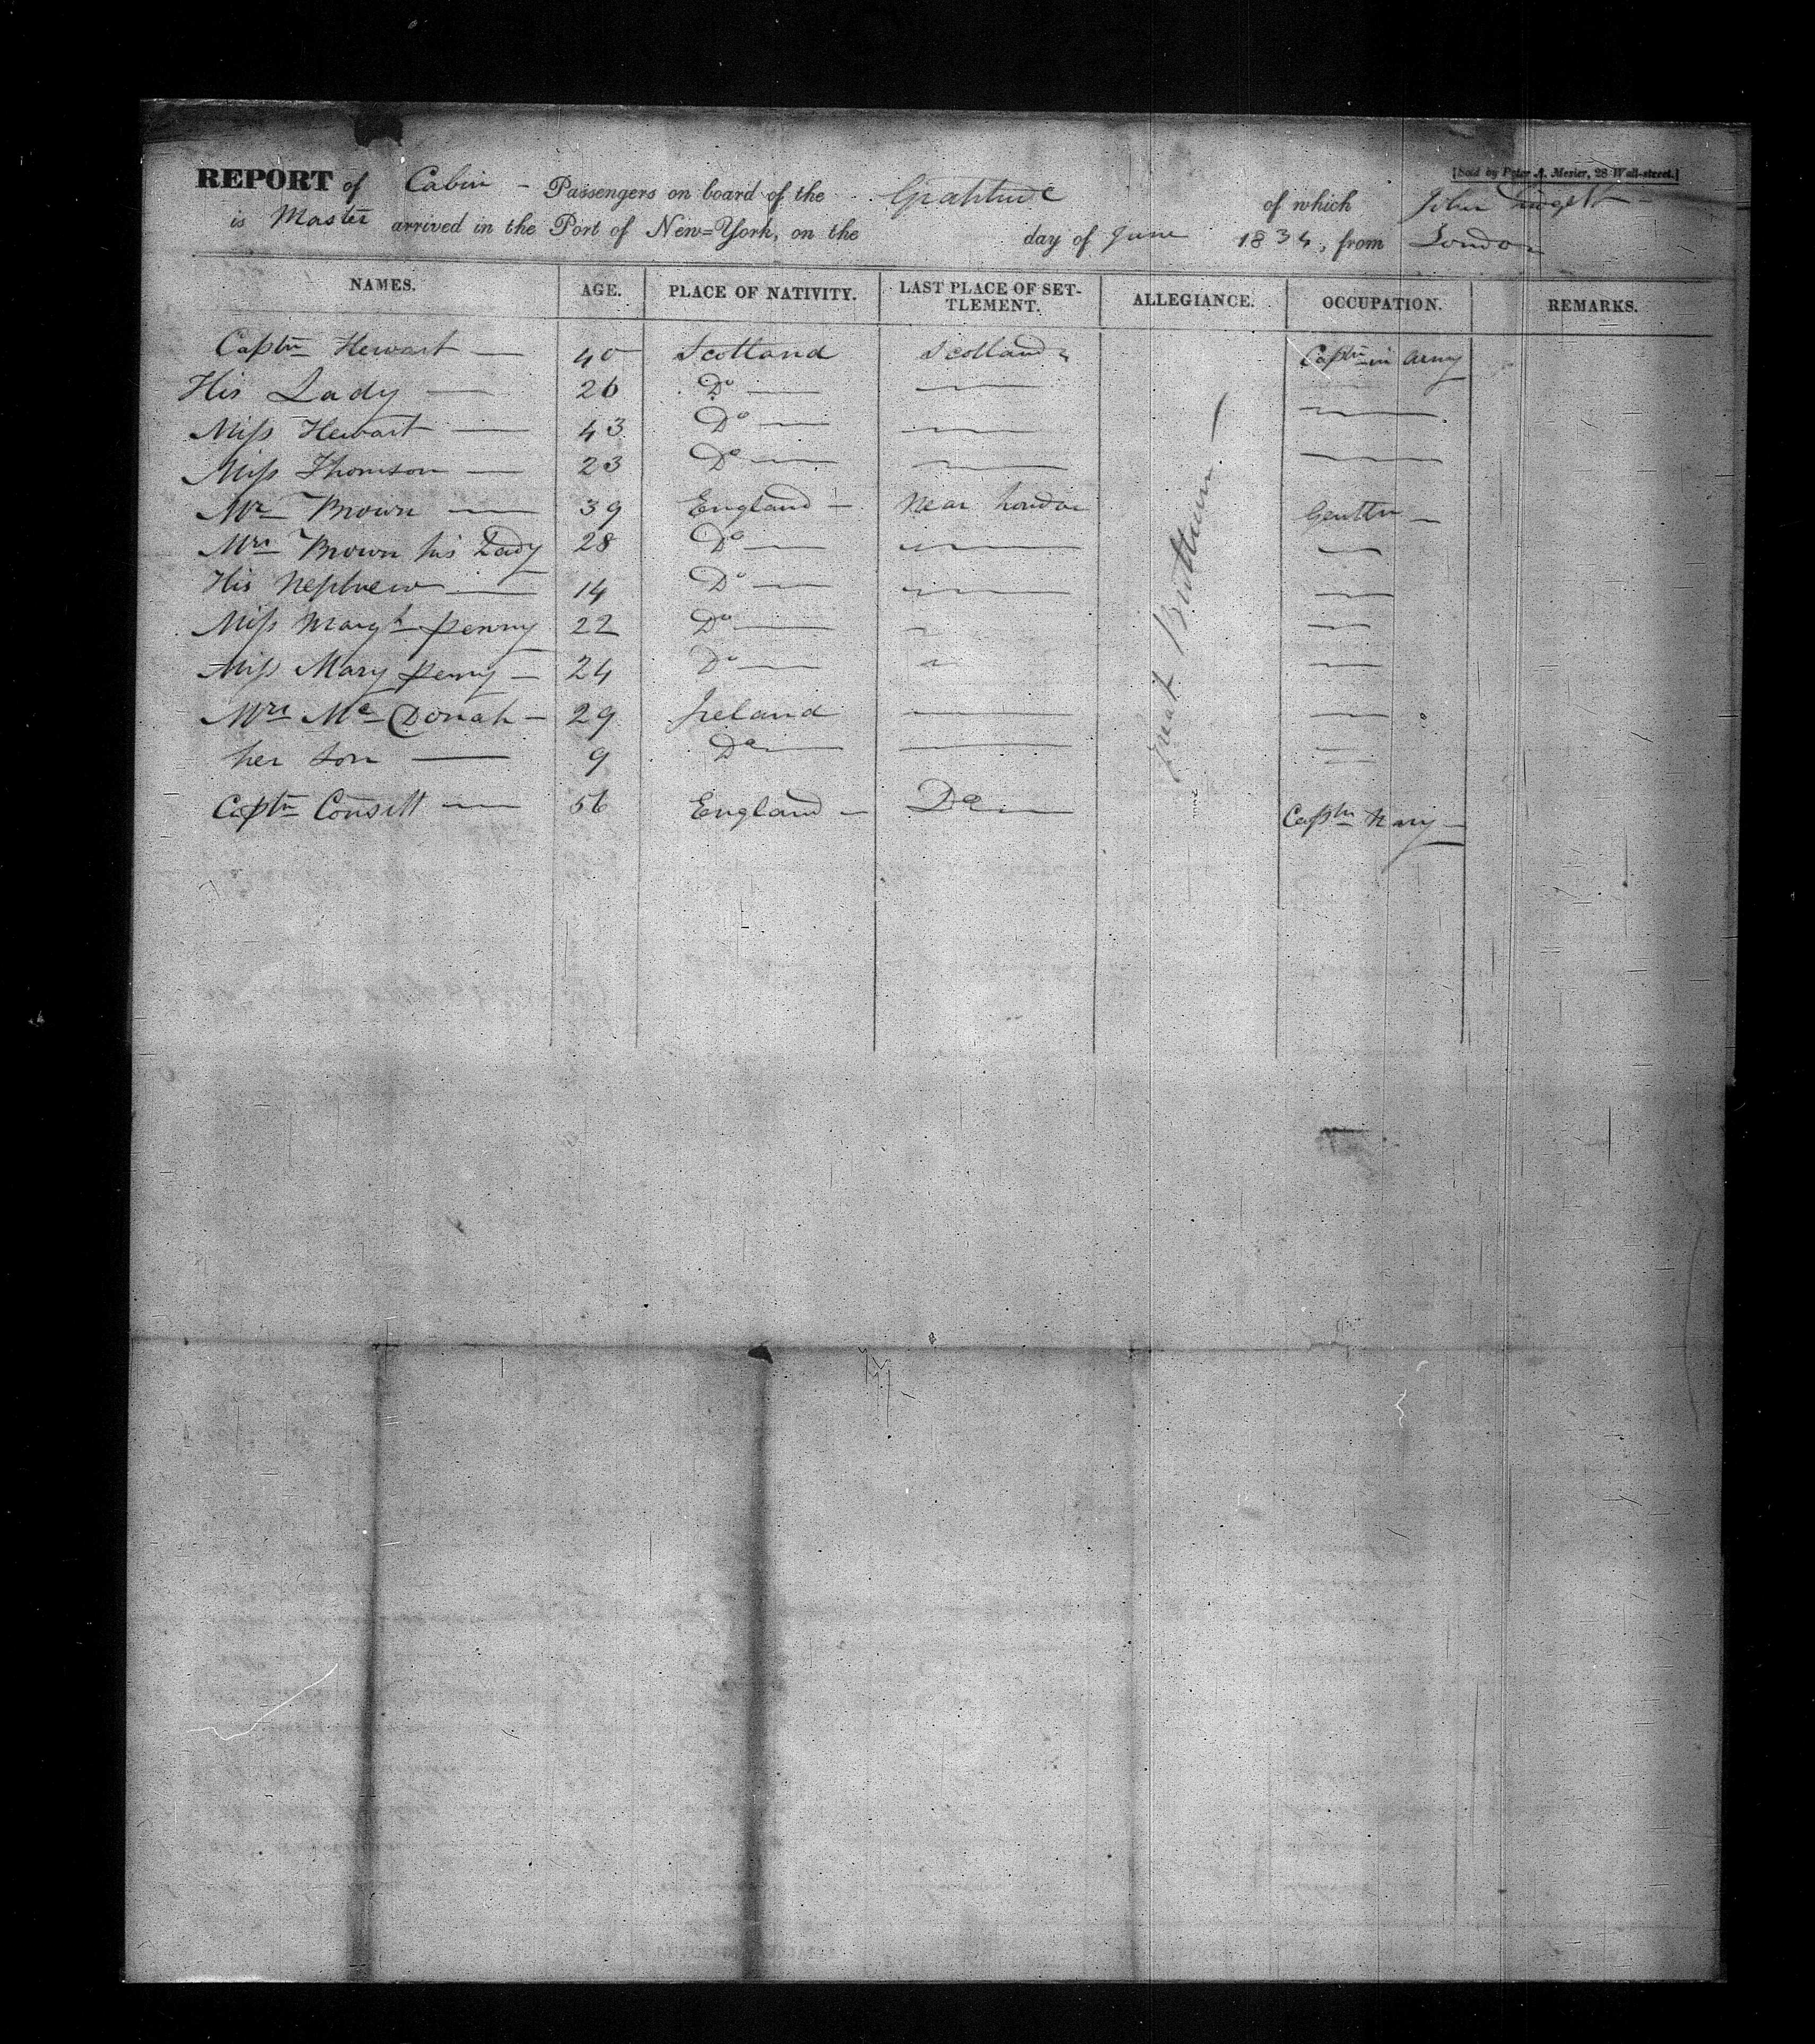 [Sold by Peter A. Mesier, 28 Wall-street.]
REPORT of Cabin - Passengers on board of the Gratitude of which John
is Master arrived in the Port of New=York, on the day of June 1834, from London
NAMES. AGE. PLACE OF NATIVITY. LAST PLACE OF SET-TLEMENT. ALLEGIANCE. OCCUPATION. REMARKS.
Captn Hewart — 40 Scotland Scotland Captn in Army
His Lady — 26 Do —
Miss Hewart — 43 Do —
Miss Thomson — 23 Do —
Mr Brown — 39 England — Near London Gentln —
Mrs Brown his Lady 28 Do —
His Nephew — 14 Do —
Miss Margt Penny 22 Do —
Miss Mary Penny — 24 Do —
Mrs Mc Donah — 29 Ireland
her son — 9 Do —
Captn Consett — 56 England — Do — Captn Navy —
Great Brittain —